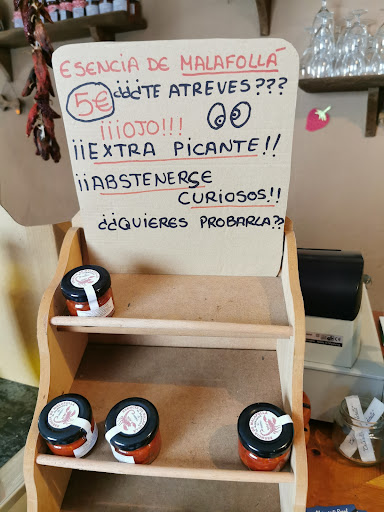 ESENCIA DE MALAFOLLÁ
5€ ¿¿¿TE ATREVES???
¡¡¡OJO!!!
¡¡EXTRA PICANTE!!
¡¡ABSTENERSE
CURIOSOS!!
¿¿QUIERES PROBARLA??